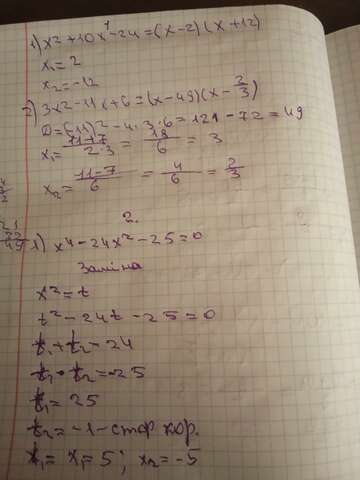 1) x² + 10x - 24 = (x-2)(x+12)
x₁ = 2
x₂ = -12
2) 3x² - 11x + 6 = (x-49)(x - 2/3)
D = (-11)² - 4·3·6 = 121 - 72 = 49
x₁ = 11+7/2·3 = 18/6 = 3
x₂ = 11-7/6 = 4/6 = 2/3
2.
1) x⁴ - 24x² - 25 = 0
Заміна
x² = t
t² - 24t - 25 = 0
t₁ + t₂ = 24
t₁ · t₂ = -25
t₁ = 25
t₂ = -1 - стор кор.
x₁ = 5; x₂ = -5